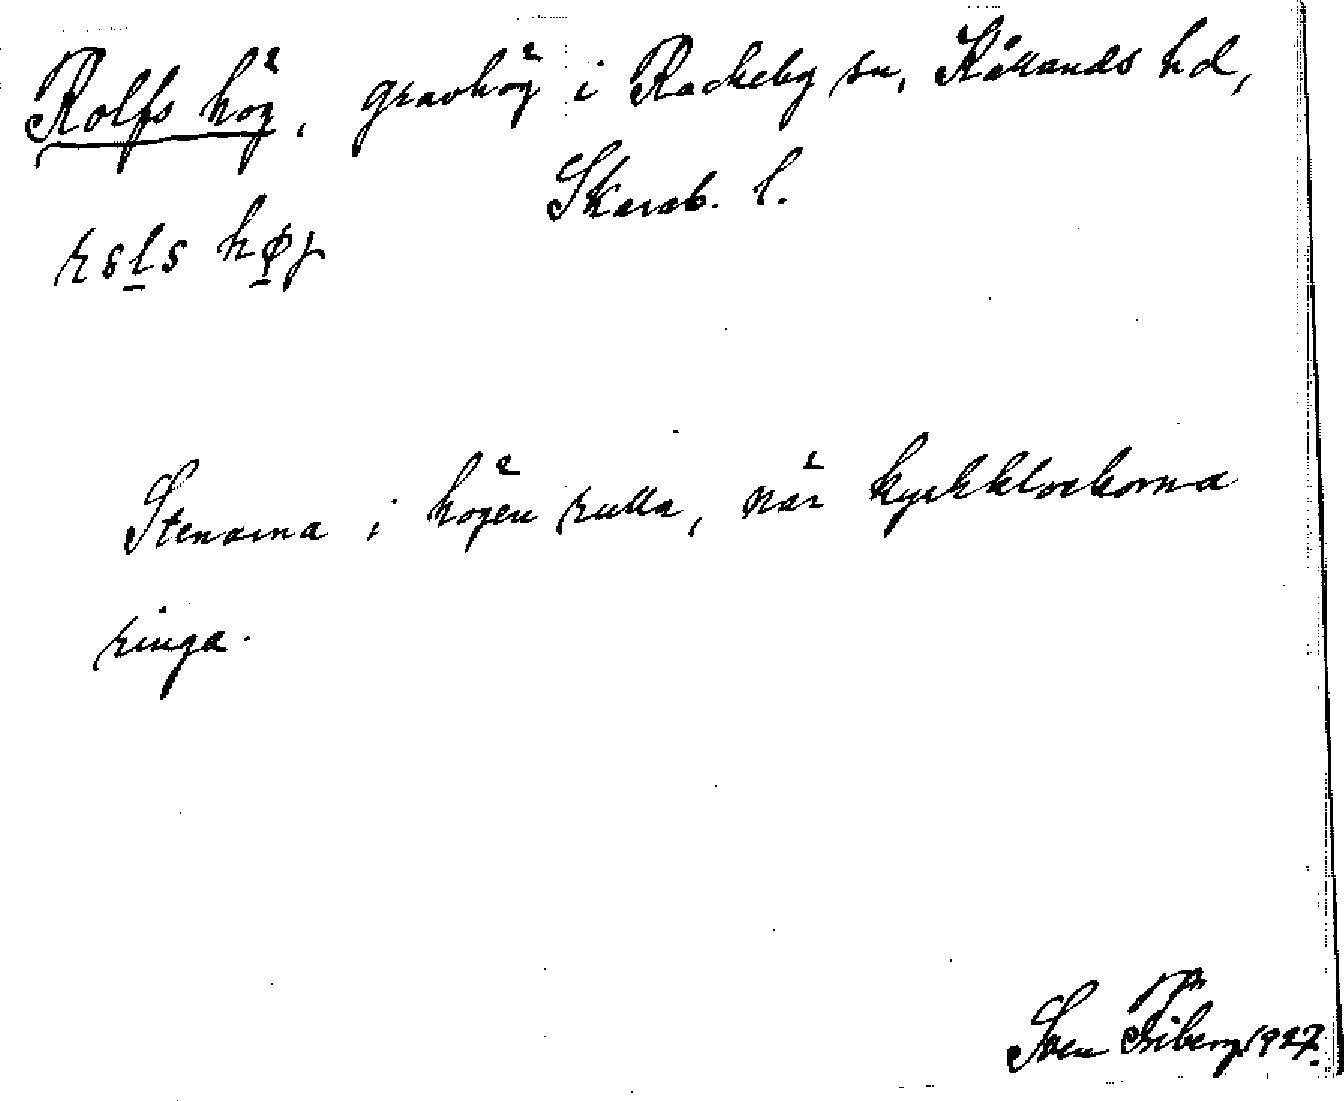 Rolfs hög, gravhög i Rackeby sn, Kållands hd,
Skarab. l.
Stenarna i högen rulla, när kyrkklockorna
ringa.
Sven Friberg 1927.